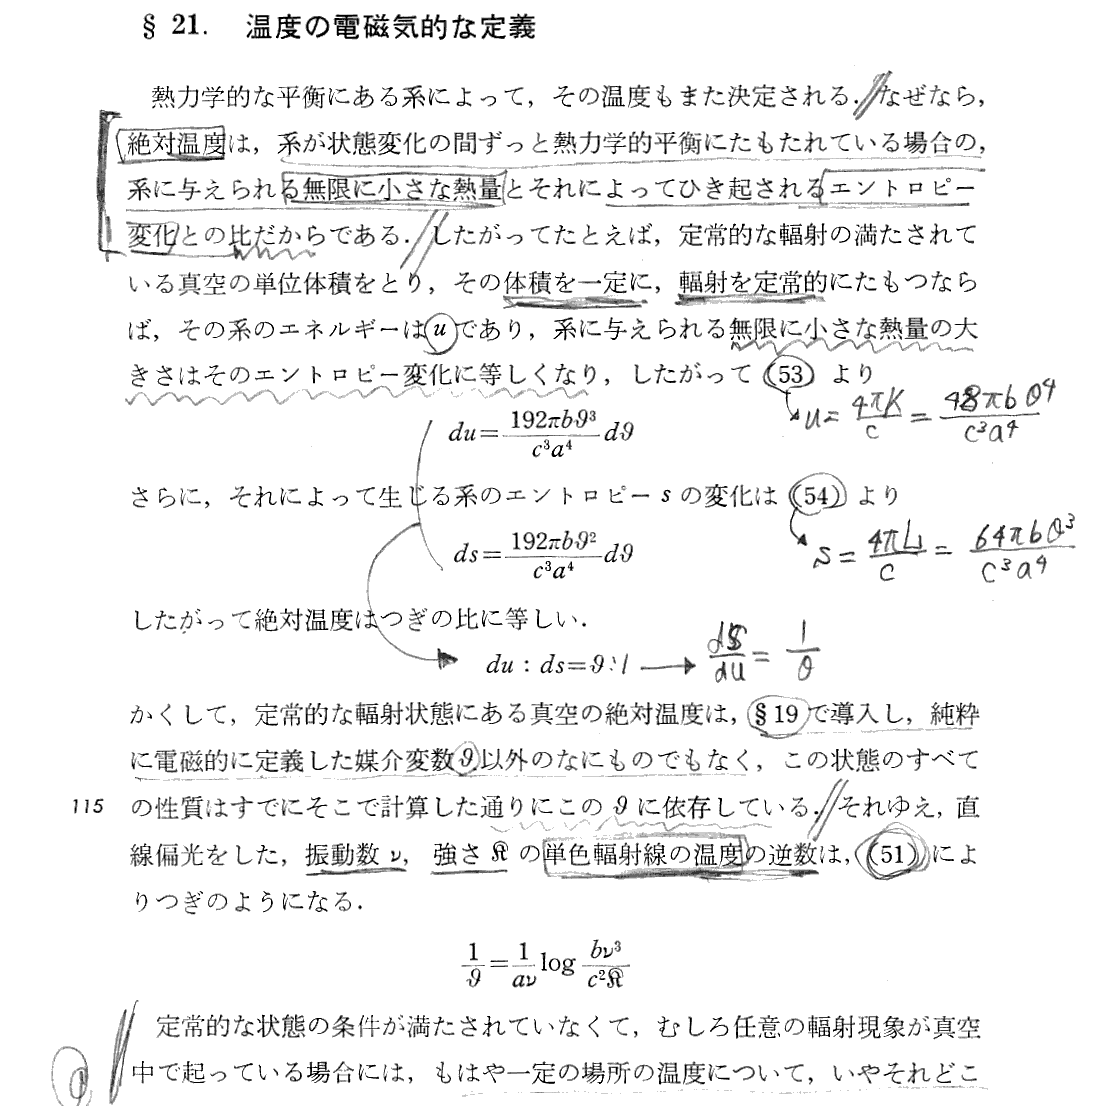 § 21. 温度の電磁気的な定義
熱力学的な平衡にある系によって，その温度もまた決定される．なぜなら，
絶対温度は，系が状態変化の間ずっと熱力学的平衡にたもたれている場合の，
系に与えられる無限に小さな熱量とそれによってひき起されるエントロピー
変化との比だからである．したがってたとえば，定常的な輻射の満たされて
いる真空の単位体積をとり，その体積を一定に，輻射を定常的にたもつなら
ば，その系のエネルギーは u であり，系に与えられる無限に小さな熱量の大
きさはそのエントロピー変化に等しくなり，したがって (53) より
u = 4πK/c = 48πbϑ⁴/c³a⁴
du = 192πbϑ³/c³a⁴ dϑ
さらに，それによって生じる系のエントロピー s の変化は (54) より
s = 4πL/c = 64πbϑ³/c³a⁴
ds = 192πbϑ²/c³a⁴ dϑ
したがって絶対温度はつぎの比に等しい．
du : ds = ϑ : 1 → dS/dU = 1/ϑ
かくして，定常的な輻射状態にある真空の絶対温度は，§19 で導入し，純粋
に電磁的に定義した媒介変数 ϑ 以外のなにものでもなく，この状態のすべて
115 の性質はすでにそこで計算した通りにこの ϑ に依存している．それゆえ，直
線偏光をした，振動数 ν，強さ 𝔎 の単色輻射線の温度の逆数は，(51) によ
りつぎのようになる．
1/ϑ = 1/aν log bν³/c²𝔎
定常的な状態の条件が満たされていなくて，むしろ任意の輻射現象が真空
中で起っている場合には，もはや一定の場所の温度について，いやそれどこ